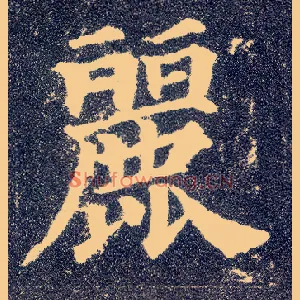 麗
Shufawang.cn